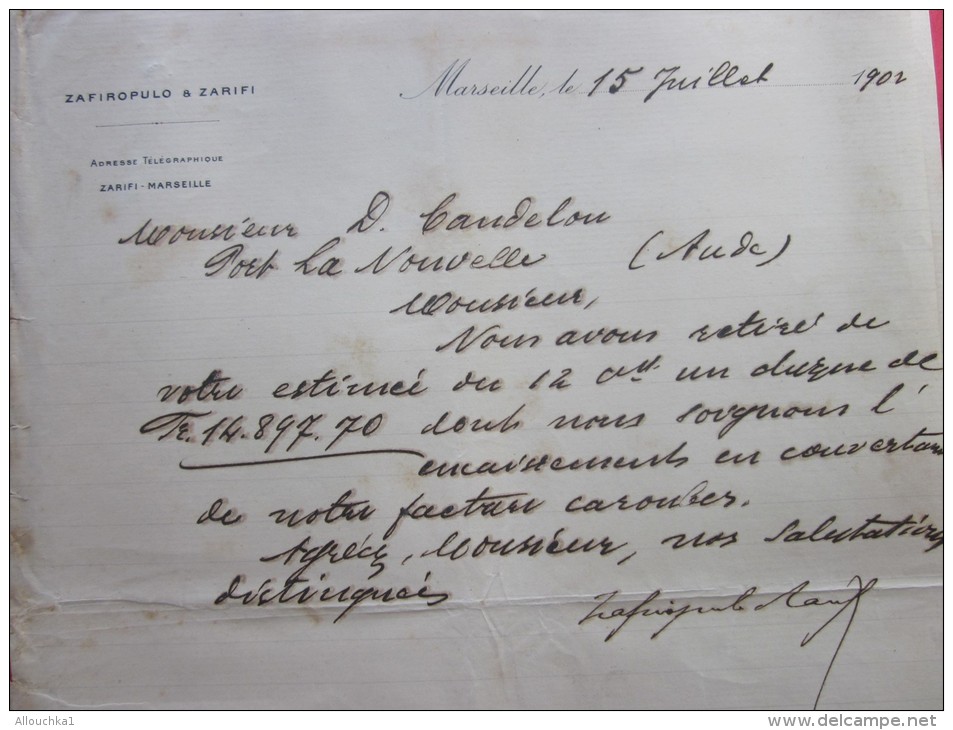 ZAFIROPULO & ZARIFI
Marseille, le 15 Juillet 1902
ADRESSE TÉLÉGRAPHIQUE
ZARIFI - MARSEILLE
Monsieur D. Candelou
Port La Nouvelle (Aude)
Monsieur,
Nous avons retiré de
votre estimée du 12 ct un chèque de
Fr. 14.897.70 dont nous soignons l'
encaissements en couverture
de notre facture caroubes.
Agréez, Monsieur, nos Salutations
distinguées
Zafiropulo Zarifi
Allouchka1
http://www.delcampe.net